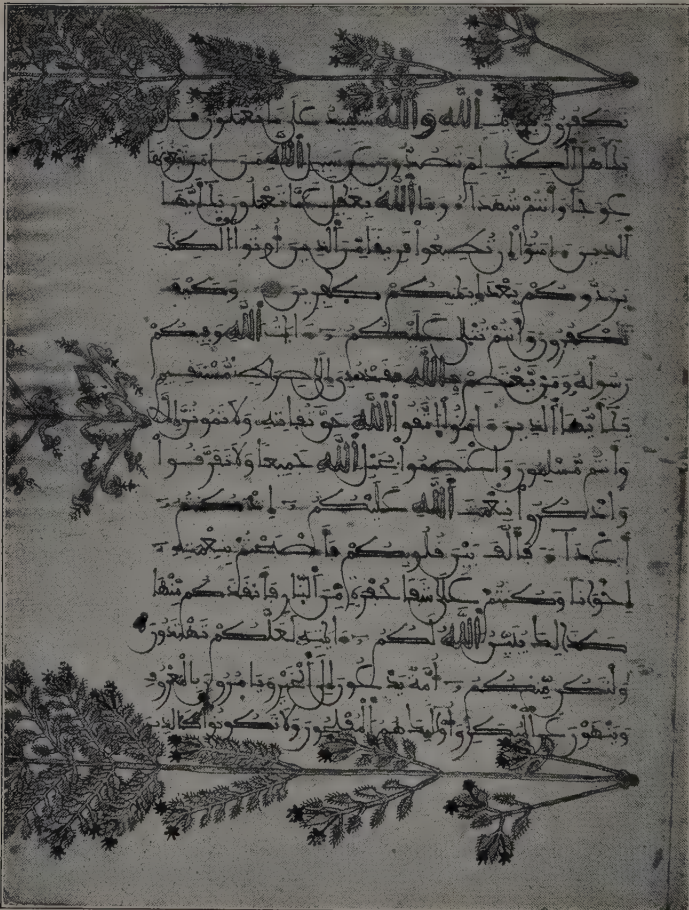 تكفرون بـٔايت الله والله شهيد على ما تعملون قل
يأهل الكتب لم تصدون عن سبيل الله من ءامن تبغونها
عوجا وأنتم شهداء وما الله بغفل عما تعملون يأيها
الذين ءامنوا إن تطيعوا فريقا من الذين أوتوا الكتب
يردوكم بعد إيمنكم كفرين وكيف
تكفرون وأنتم تتلى عليكم ءايت الله وفيكم
رسوله ومن يعتصم بالله فقد هدي إلى صرط مستقيم
يأيها الذين ءامنوا اتقوا الله حق تقاته ولا تموتن إلا
وأنتم مسلمون واعتصموا بحبل الله جميعا ولا تفرقوا
واذكروا نعمت الله عليكم إذ كنتم
أعداء فألف بين قلوبكم فأصبحتم بنعمته
إخوانا وكنتم على شفا حفرة من النار فأنقذكم منها
كذلك يبين الله لكم ءايته لعلكم تهتدون
ولتكن منكم أمة يدعون إلى الخير ويأمرون بالمعروف
وينهون عن المنكر وأولئك هم المفلحون ولا تكونوا كالذين